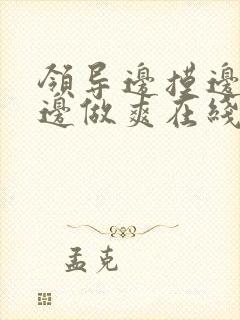 領导邊摸邊
邊做爽在綫
孟克